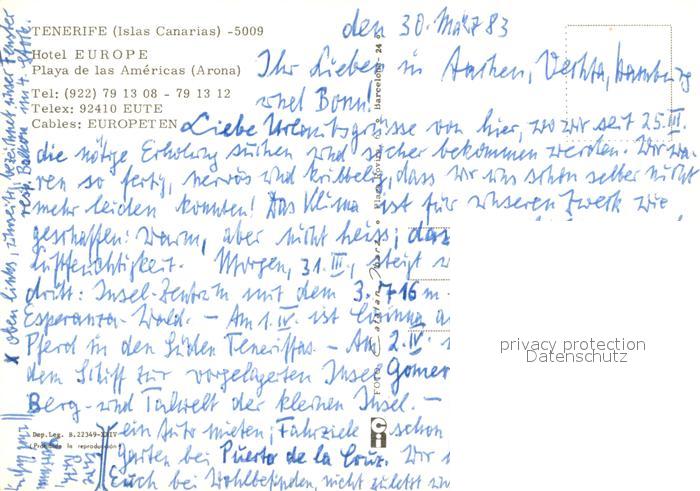 TENERIFE (Islas Canarias) -5009
Hotel EUROPE
Playa de las Américas (Arona)
Tel: (922) 79 13 08 - 79 13 12
Telex: 92410 EUTE
Cables: EUROPETEN
den 30. März 83
Ihr Lieben in Aachen, Vechta, Hamburg
und Bonn!
Liebe Urlaubsgrüsse von hier, wo wir seit 25.III.
die nötige Erholung suchen und sicher bekommen werden. Wir wa-
ren so fertig, nervös und kribbelig, dass wir uns schon selber nicht
mehr leiden konnten! Das Klima ist für unseren Zweck wie
geschaffen: warm, aber nicht heiss; das
Luftfeuchtigkeit. Morgen, 31.III., steigt
dritt: Insel-Zentrum mit dem 3.716 m
Esperanza-Wald. – Am 1.IV. ist
Pferd in den Süden Teneriffas – Am 2.IV.
dem Schiff zur vorgelagerten Insel Gomer
Berg- und Talwelt der kleinen Insel. –
ein Auto mieten; Fahrziele schon
Garten bei Puerto de la Cruz. Wir
Euch bei Wohlbefinden, nicht zuletzt
x oben links, bezeichnet unser Fenster
resp. Balkon
Foto
Barcelona
Dep. Leg. B. 22349-XXIV
(Prohibida la reproducción)
privacy protection
Datenschutz